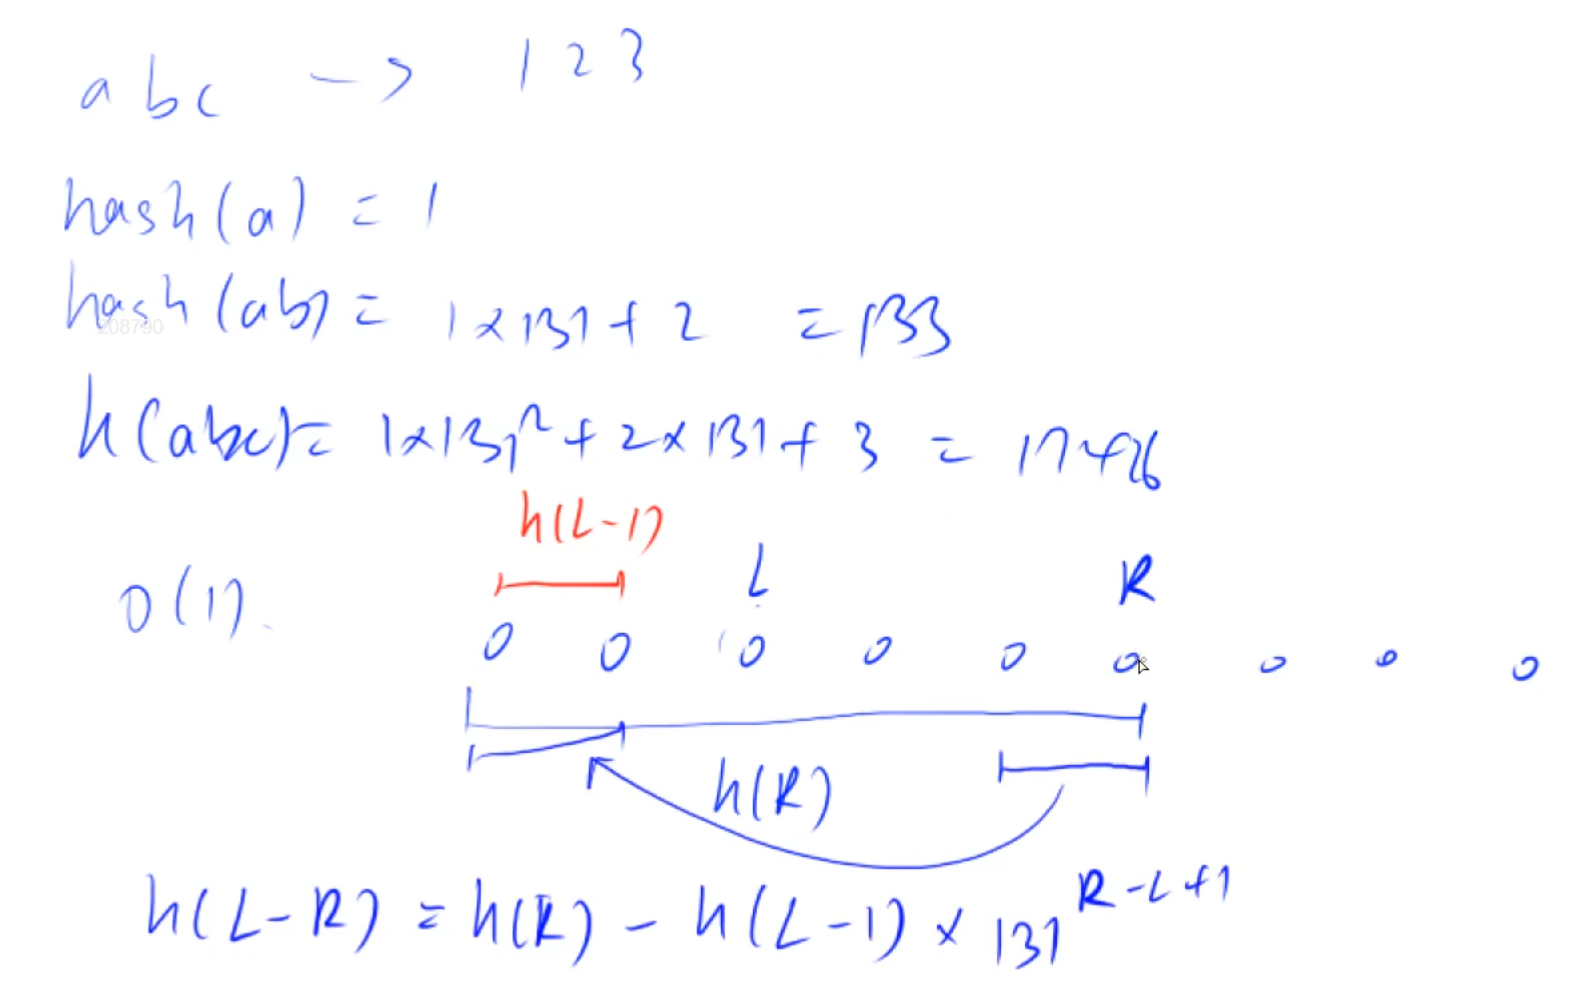 abc -> 123
hash(a) = 1
hash(ab) = 1×131+2 = 133
208790
h(abc) = 1×131²+2×131+3 = 17426
h(L-1)
O(1).
L
R
0 0 0 0 0 0 0 0 0
h(R)
h(L-R) = h(R) - h(L-1) × 131^R-L+1